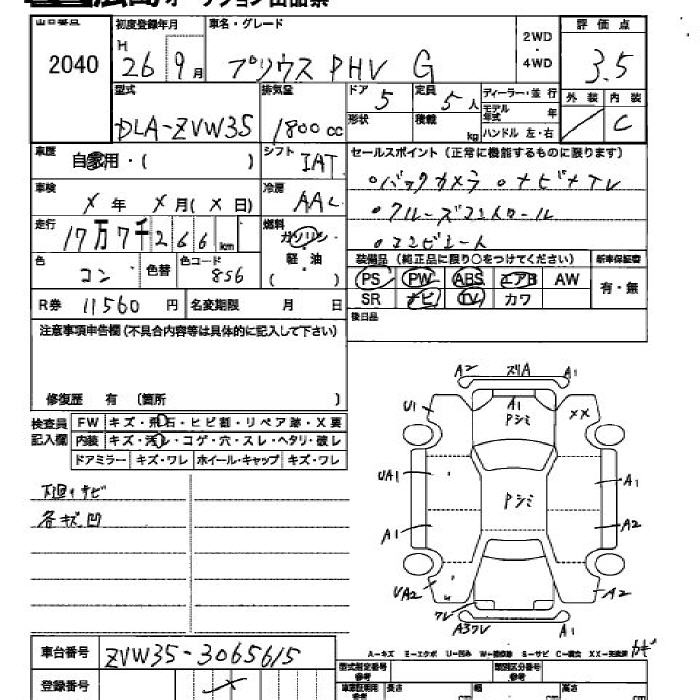 オークション出品票
出品番号 初度登録年月 車名・グレード 2WD・4WD 評価点
2040 H 26 9月 プリウス PHV G 3.5
型式 排気量 ドア 5 定員 5人 ディーラー・並行 外装 内装
モデル年式 年
DLA-ZVW35 1800cc 形状 積載 kg ハンドル 左・右 C
車歴 自家用・( ) シフト IAT セールスポイント(正常に機能するものに限ります)
車検 X年 X月(X日) 冷房 AAC ○バックカメラ ○ナビ+TV
走行 17万7千266km 燃料 ガソリン ○クルーズコントロール
軽油
( )
色 コン 色替 色コード 856 装備品(純正品に限り○をつけてください) 新車保証書
PS PW ABS エアB AW 有・無
R券 11560円 名変期限 月 日 SR ナビ TV カワ
後日品
注意事項申告欄(不具合内容等は具体的に記入して下さい)
修復歴 有 〔箇所 〕
検査員記入欄 FW キズ・飛石・ヒビ割・リペア跡・X要
内装 キズ・汚レ・コゲ・穴・スレ・ヘタリ・破レ
ドアミラー キズ・ワレ ホイール・キャップ キズ・ワレ
下廻りサビ
各キズ凹
A2 スリA A1
U1 A1 Pシミ XX
UA1 Pシミ A1
A1 A2
UA2 ワレ A2
A3ワレ A1
A−キズ E−エクボ U−凹み S−サビ
車台番号 ZVW35-3065615
型式指定番号 参考 類別区分番号 参考
登録番号
長さ cm 幅 cm 高さ cm